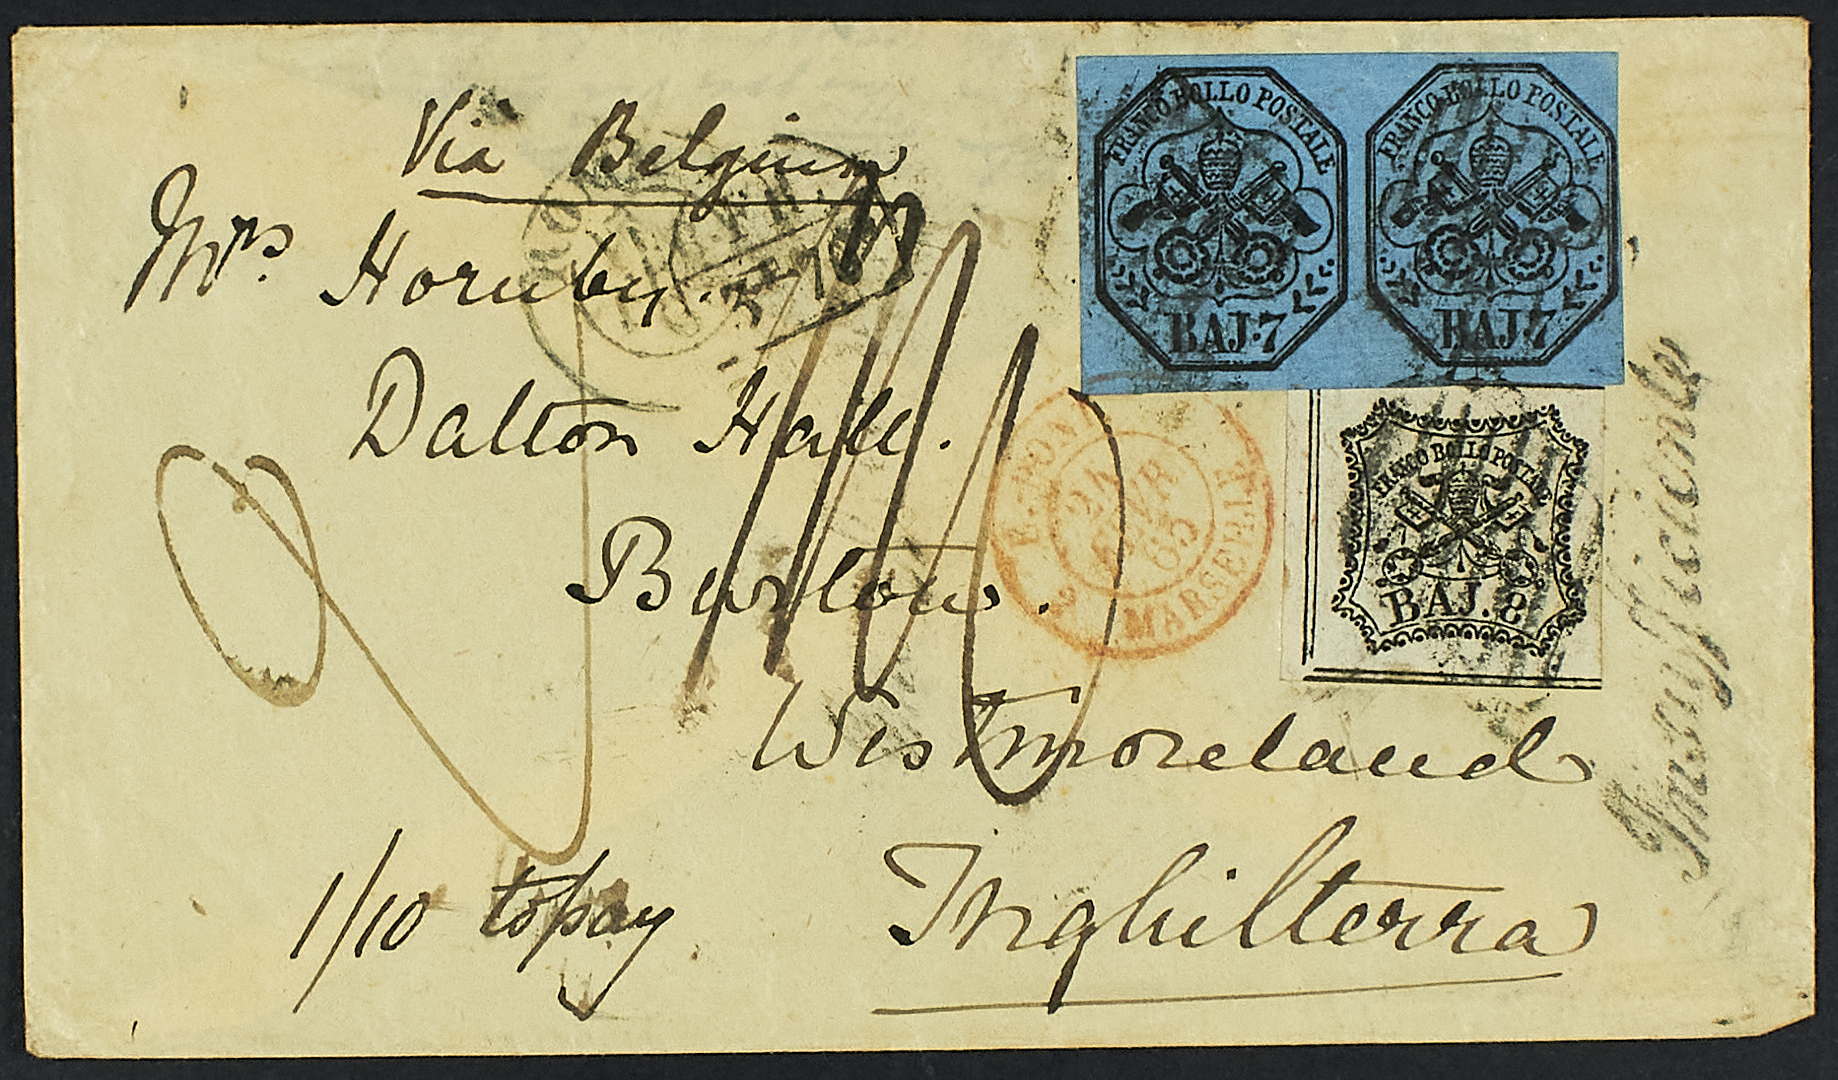 Via Belgium
Mrs Hornby.
Dalton Hall.
Burton.
Westmoreland
Inghilterra
1/10 to pay
FRANCO BOLLO POSTALE
BAJ. 7
FRANCO BOLLO POSTALE
BAJ. 7
FRANCO BOLLO POSTALE
BAJ. 8
Insufficiente
E. PONT. MARSEILLE
24 FEVR 65